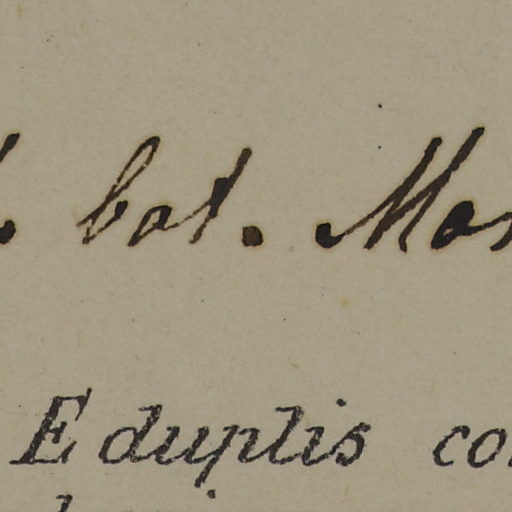 . bot. Mon
E duplis co